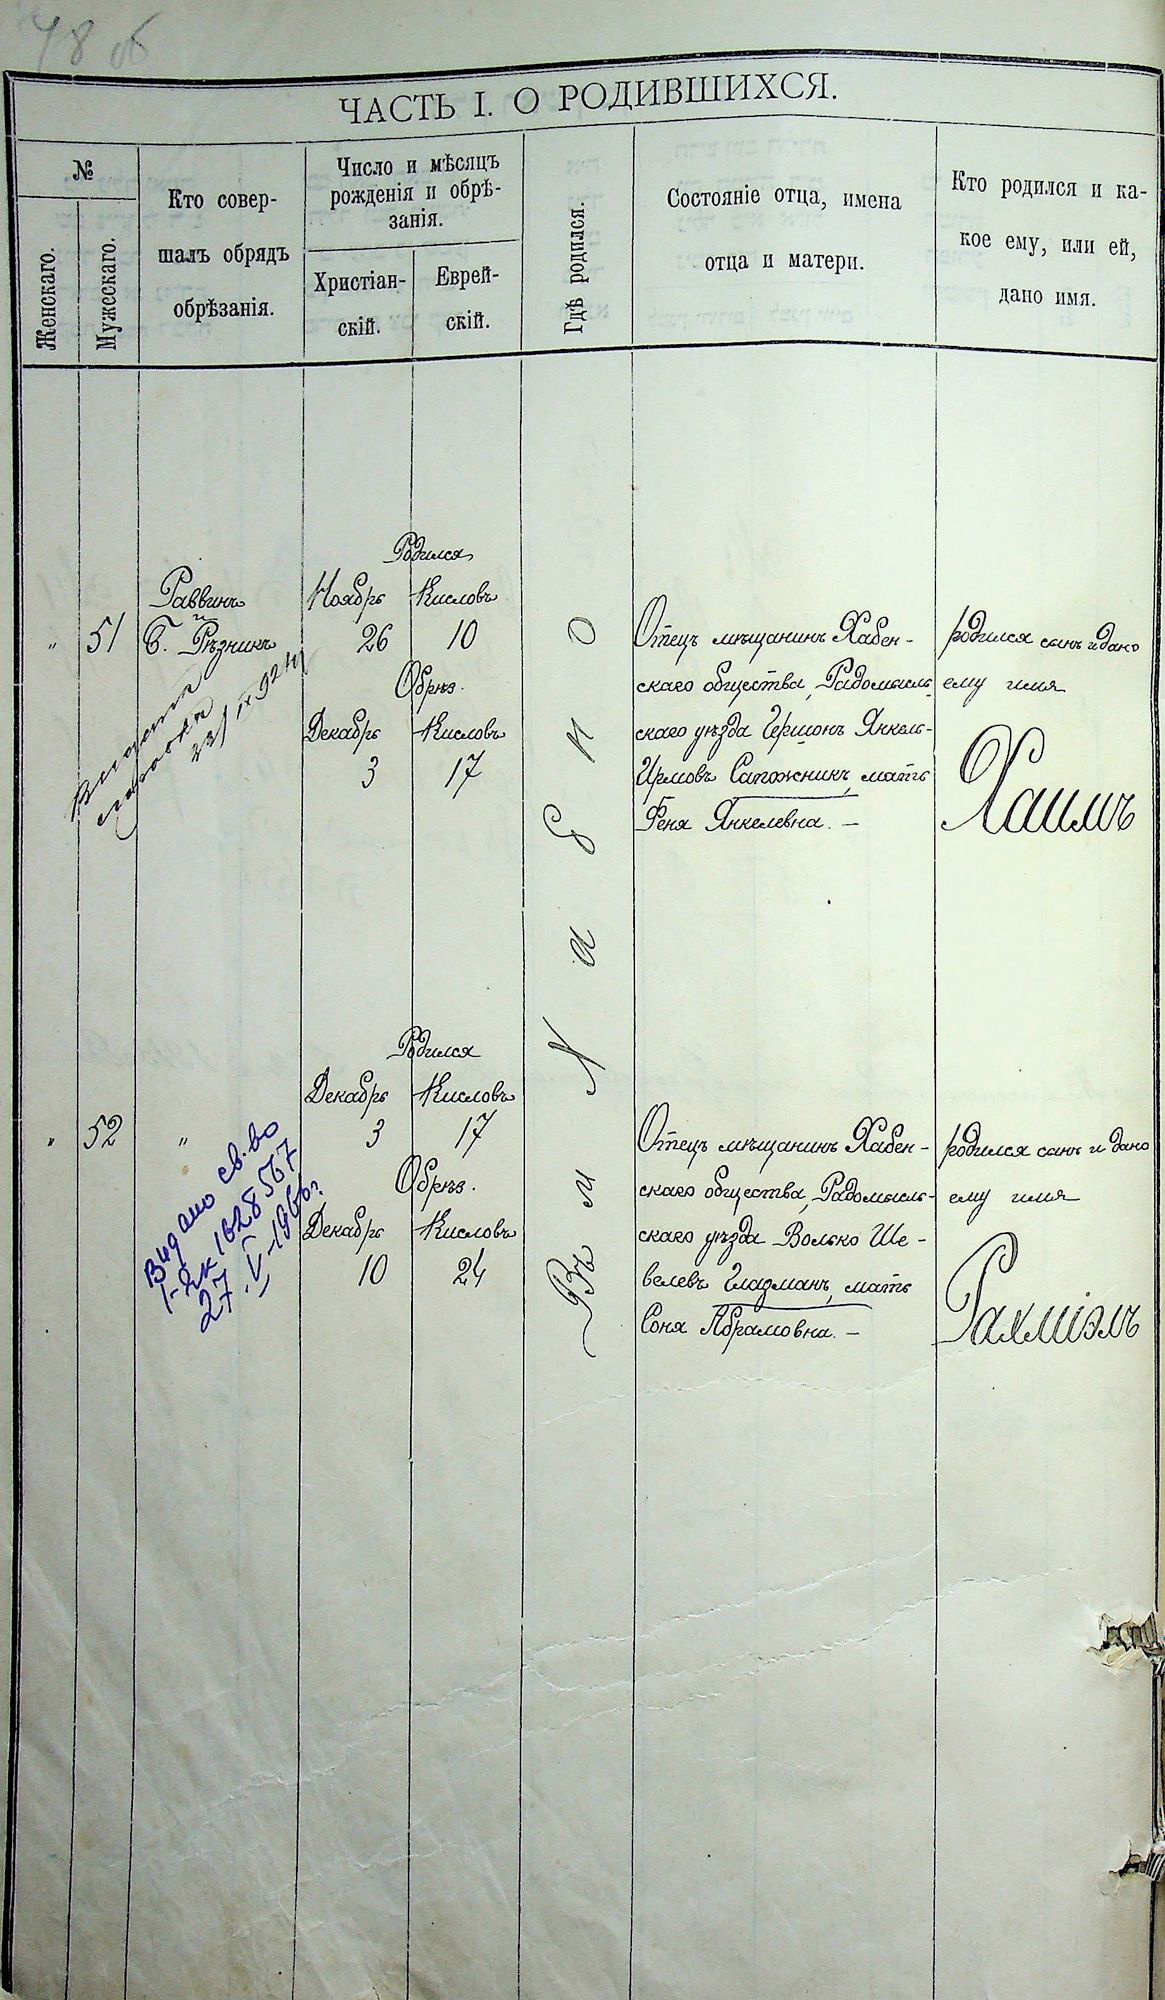 48 об
ЧАСТЬ I. О РОДИВШИХСЯ.
№
Женскаго.
Мужескаго.
Кто совер-
шалъ обрядъ
обрѣзанія.
Число и мѣсяцъ
рожденія и обрѣ-
занія.
Христіан-
скій.
Еврей-
скій.
Гдѣ родился.
Состояніе отца, имена
отца и матери.
Кто родился и ка-
кое ему, или ей,
дано имя.
" 51
Раввинъ
и
Б. Рѣзникъ
23/IX 924
Родился
Ноябрь Кисловъ
26 10
Обрѣз.
Декабрь Кисловъ
3 17
Въ м. Хабно
Отецъ мѣщанинъ Хабен-
скаго общества, Радомысль-
скаго уѣзда Гершонъ Янкель-
Сапожникъ, мать
Феня Янкелевна. —
родился сынъ и дано
ему имя
Хаимъ
" 52
"
Видано св-во
І-ЯК 1028567
27.V-1960г.
Родился
Декабрь Кисловъ
3 17
Обрѣз.
Декабрь Кисловъ
10 24
Отецъ мѣщанинъ Хабен-
скаго общества, Радомысль-
скаго уѣзда Волько Ше-
велевъ Глазманъ, мать
Соня Абрамовна. —
родился сынъ и дано
ему имя
Рахміэль